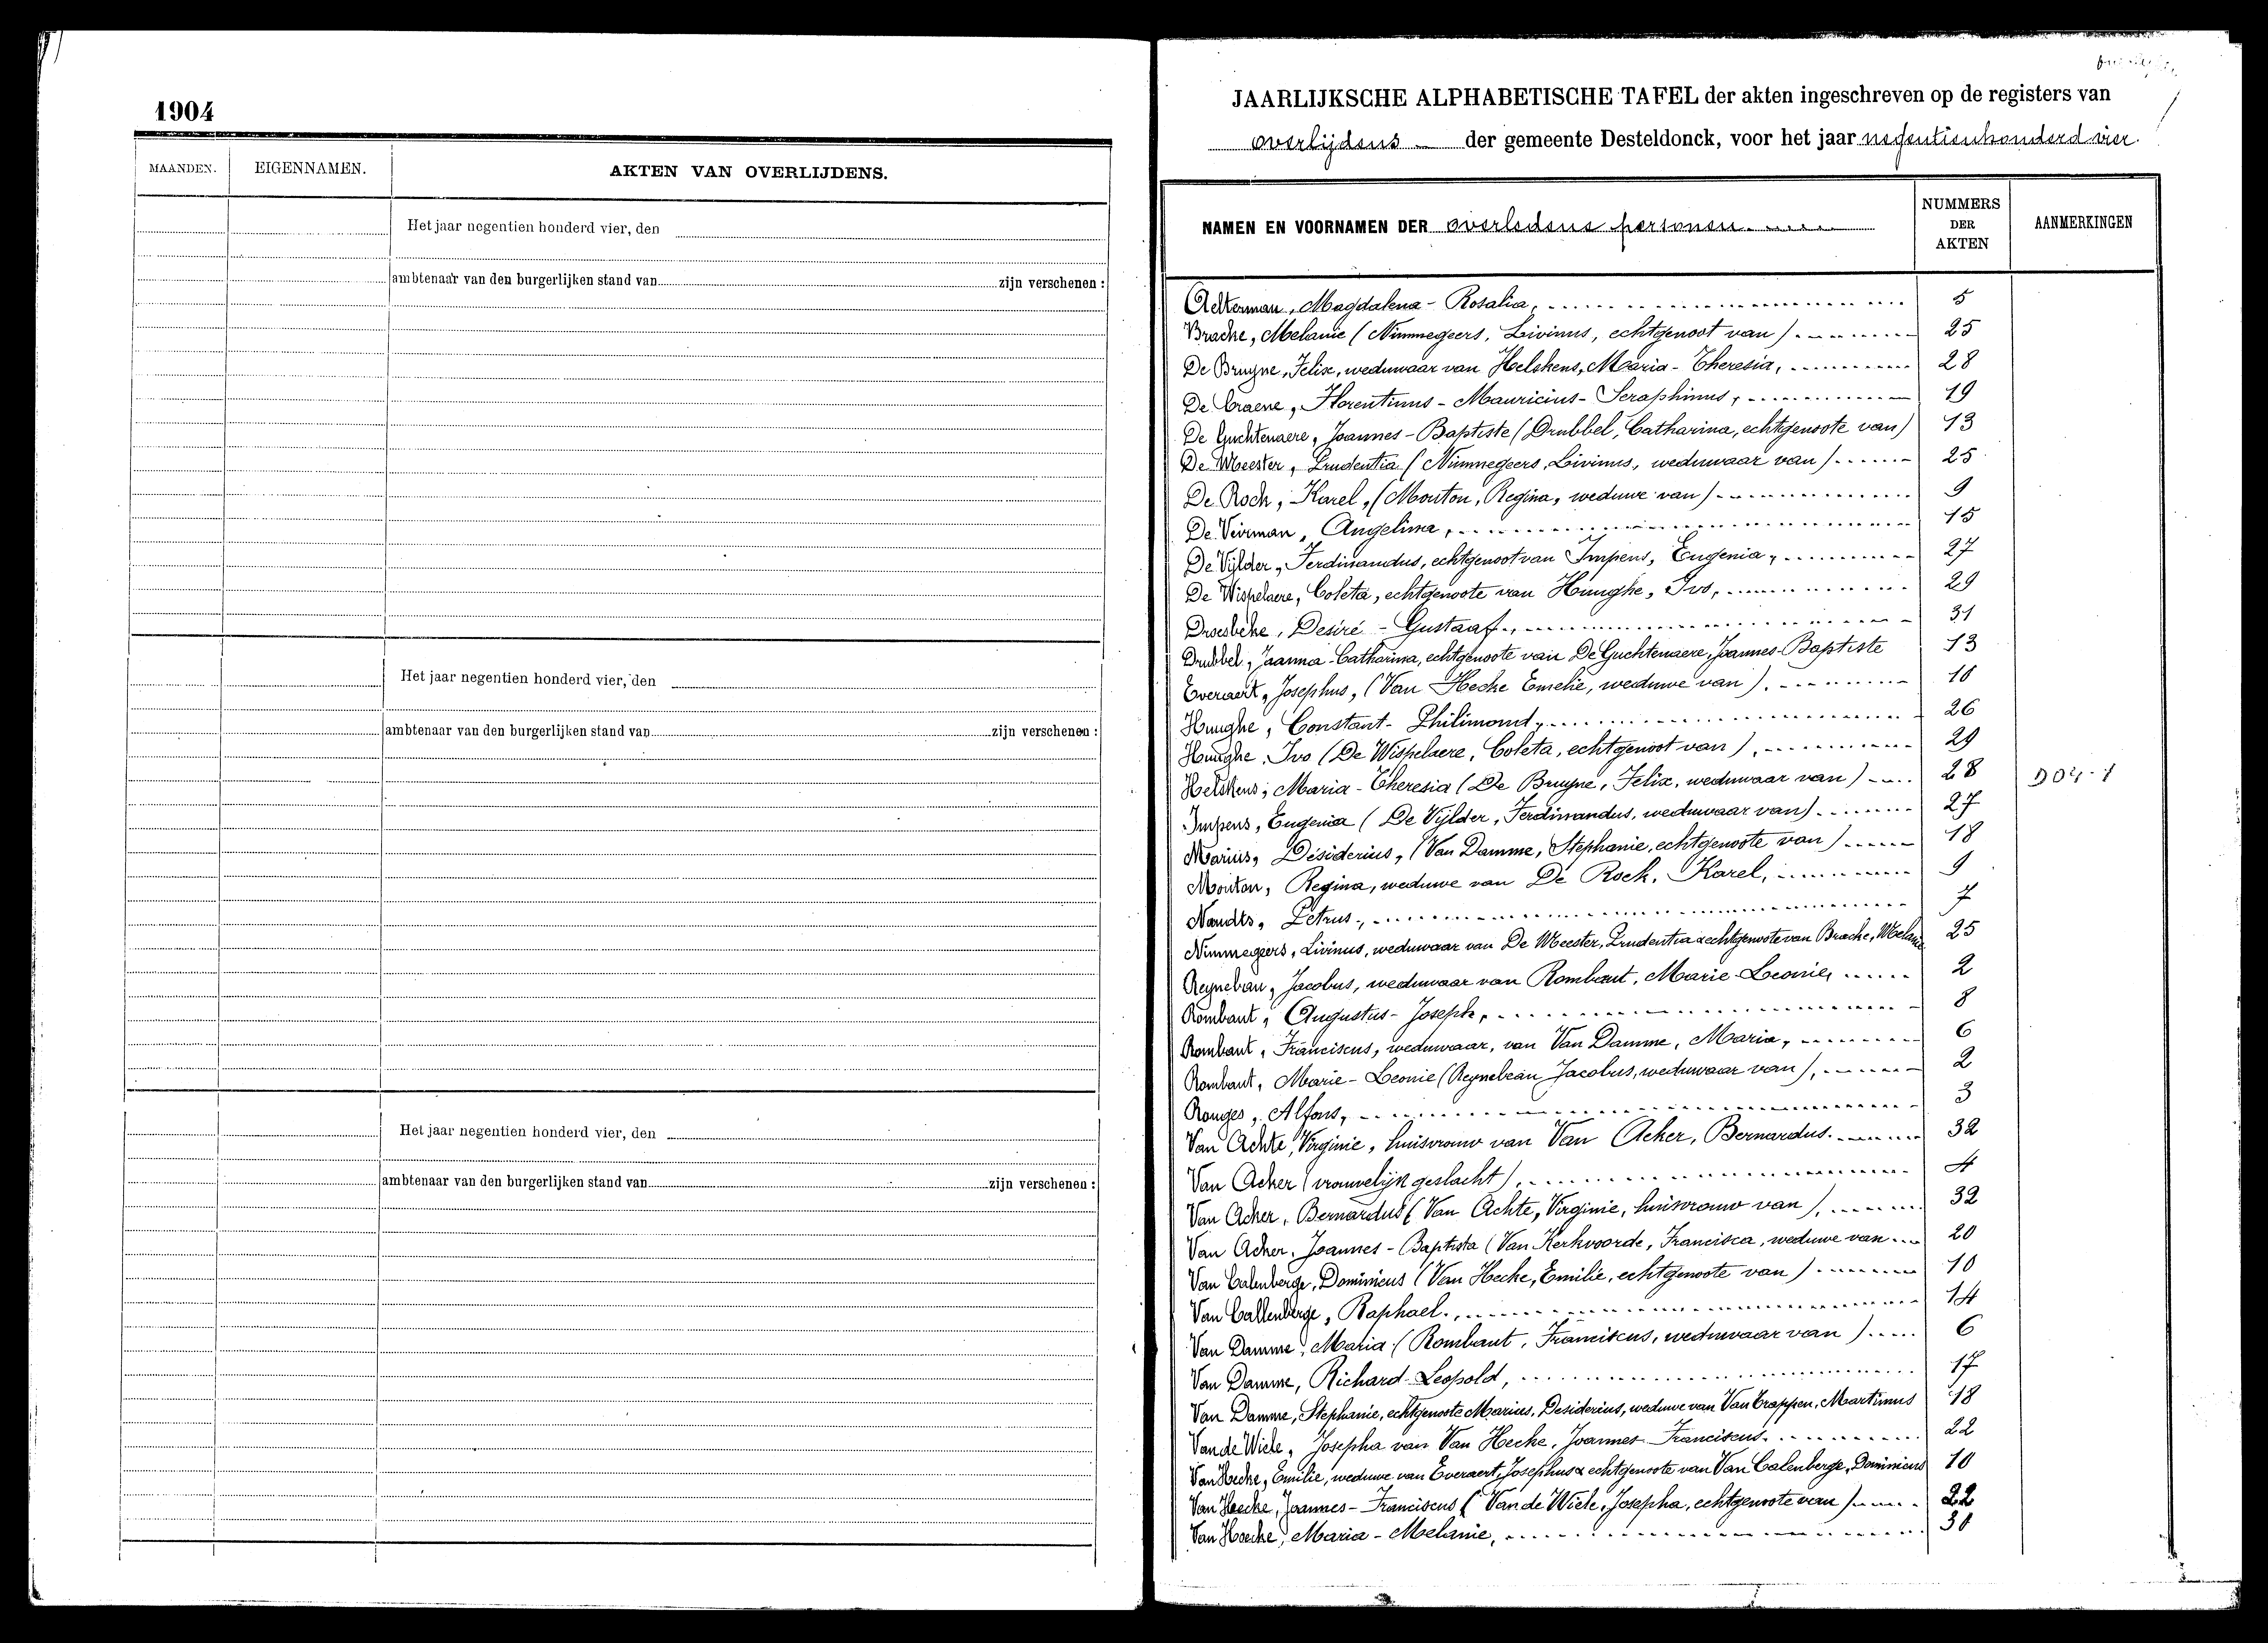 1904
MAANDEN. EIGENNAMEN. AKTEN VAN OVERLIJDENS.
Het jaar negentien honderd vier, den
ambtenaar van den burgerlijken stand van zijn verschenen :
Het jaar negentien honderd vier, den
ambtenaar van den burgerlijken stand van zijn verschenen :
Het jaar negentien honderd vier, den
ambtenaar van den burgerlijken stand van zijn verschenen :
JAARLIJKSCHE ALPHABETISCHE TAFEL der akten ingeschreven op de registers van
overlijdens der gemeente Desteldonck, voor het jaar negentienhonderd vier.
NAMEN EN VOORNAMEN DER overledene personen. NUMMERS DER AKTEN AANMERKINGEN
Ackerman, Magdalena - Rosalia, 5
Brache, Melanie (Nimmegeers, Livinus, echtgenoot van) 25
De Bruyne, Felix, weduwaar van Helskens, Maria - Theresia, 28
De Craene, Florentinus - Mauricius - Seraphinus, 19
De Guchtenaere, Joannes - Baptiste (Drubbel, Catharina, echtgenoote van) 13
De Meester, Prudentia (Nimmegeers, Livinus, weduwaar van) 25
De Rock, Karel, (Mouton, Regina, weduwe van) 9
De Veirman, Angelina, 15
De Vylder, Ferdinandus, echtgenoot van Impens, Eugenia, 27
De Wispelaere, Coleta, echtgenoote van Hunghe, Ivo, 29
Droesbeke, Desiré - Gustaaf, 31
Drubbel, Joanna - Catharina, echtgenoote van De Guchtenaere, Joannes - Baptiste 13
Everaert, Josephus, (Van Hecke Emelie, weduwe van). 10
Hunghe, Constant - Philimond, 26
Hunghe, Ivo (De Wispelaere, Coleta, echtgenoot van), 29
Helskens, Maria - Theresia (De Bruyne, Felix, weduwaar van) 28
Impens, Eugenia (De Vylder, Ferdinandus, weduwaar van). 27
Marius, Désiderius, (Van Damme, Stephanie, echtgenoote van) 18
Mouton, Regina, weduwe van De Rock, Karel, 9
Nandts, Petrus, 7
Nimmegeers, Livinus, weduwaar van De Meester, Prudentia & echtgenoote van Brache, Melanie 25
Reynebau, Jacobus, weduwaar van Rombaut, Marie - Leonie, 2
Rombaut, Augustus - Joseph, 8
Rombaut, Franciscus, weduwaar, van Van Damme, Maria, 6
Rombaut, Marie - Leonie (Reynebeau Jacobus, weduwaar van), 2
Ronges, Alfons, 3
Van Achte, Virginie, huisvrouw van Van Acker, Bernardus. 32
Van Acker (vrouwelijk geslacht), 4
Van Acker, Bernardus (Van Achte, Virginie, huisvrouw van), 32
Van Acker, Joannes - Baptista (Van Kerkvoorde, Francisca, weduwe van 20
Van Calenberge, Dominicus (Van Hecke, Emilie, echtgenoote van) 10
Van Callenberge, Raphael., 14
Van Damme, Maria (Rombaut, Franciscus, weduwaar van) 6
Van Damme, Richard - Leopold, 17
Van Damme, Stephanie, echtgenoote Marius, Desiderius, weduwe van Van Crappen, Martinus 18
Van de Wiele, Josepha van Van Hecke, Joannes Franciscus. 22
Van Hecke, Emilie, weduwe van Everaert, Josephus & echtgenoote van Van Calenberge, Dominicus 10
Van Hecke, Joannes - Franciscus (Van de Wiele, Josepha, echtgenoote van) 22
Van Hecke, Maria - Melanie, 30